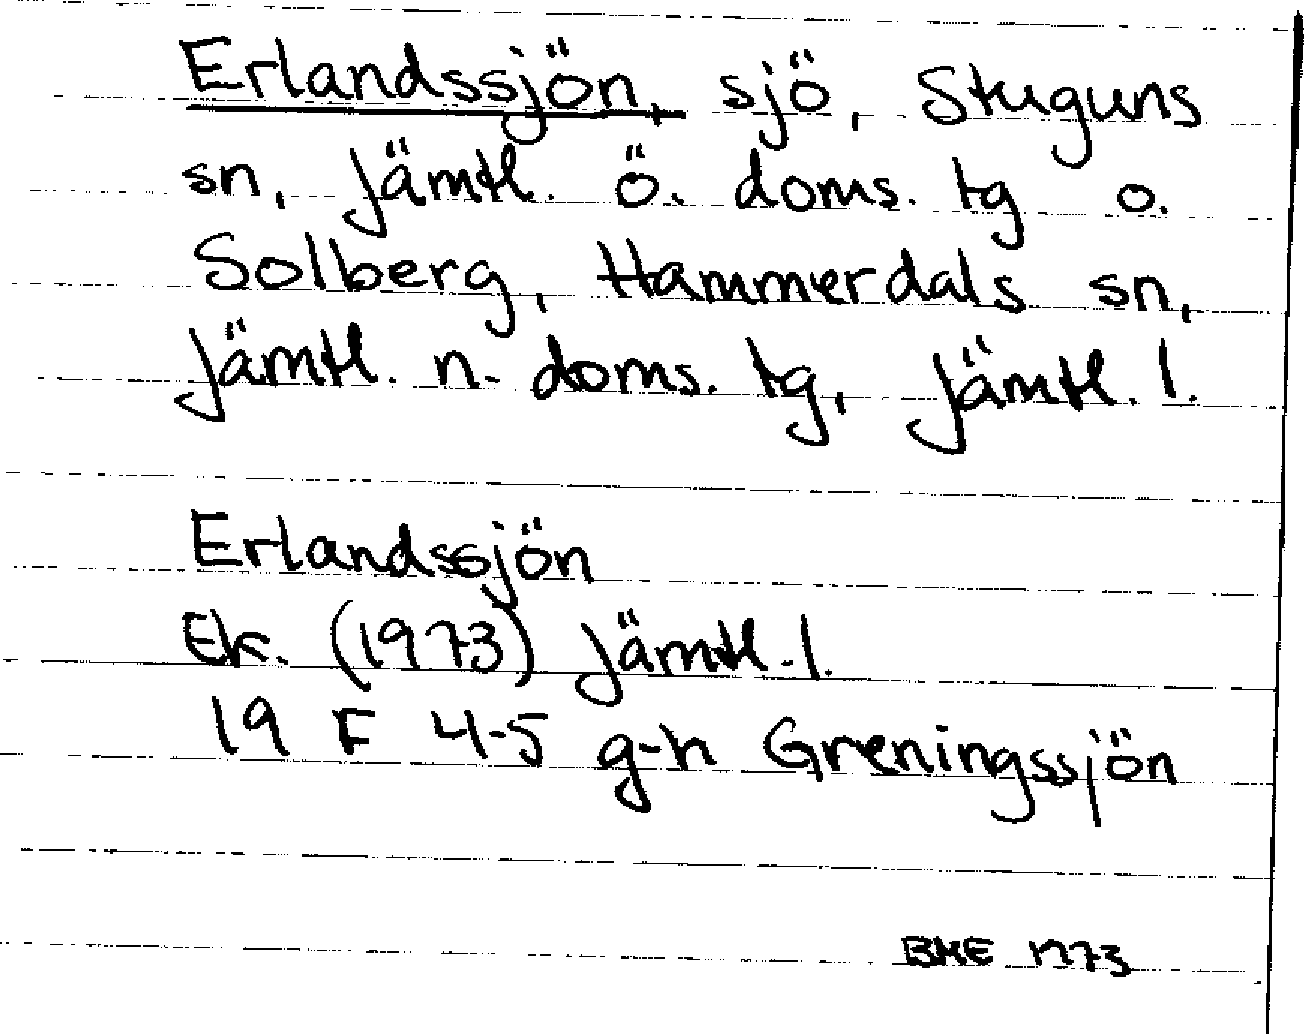 Erlandssjön, sjö, Stuguns
sn, Jämtl. ö. doms. tg o.
Solberg, Hammerdals sn,
Jämtl. n. doms. tg, Jämtl. l.
Erlandssjön
Ek. (1973) Jämtl. l.
19 F 4-5 g-h Greningssjön
BME 1973